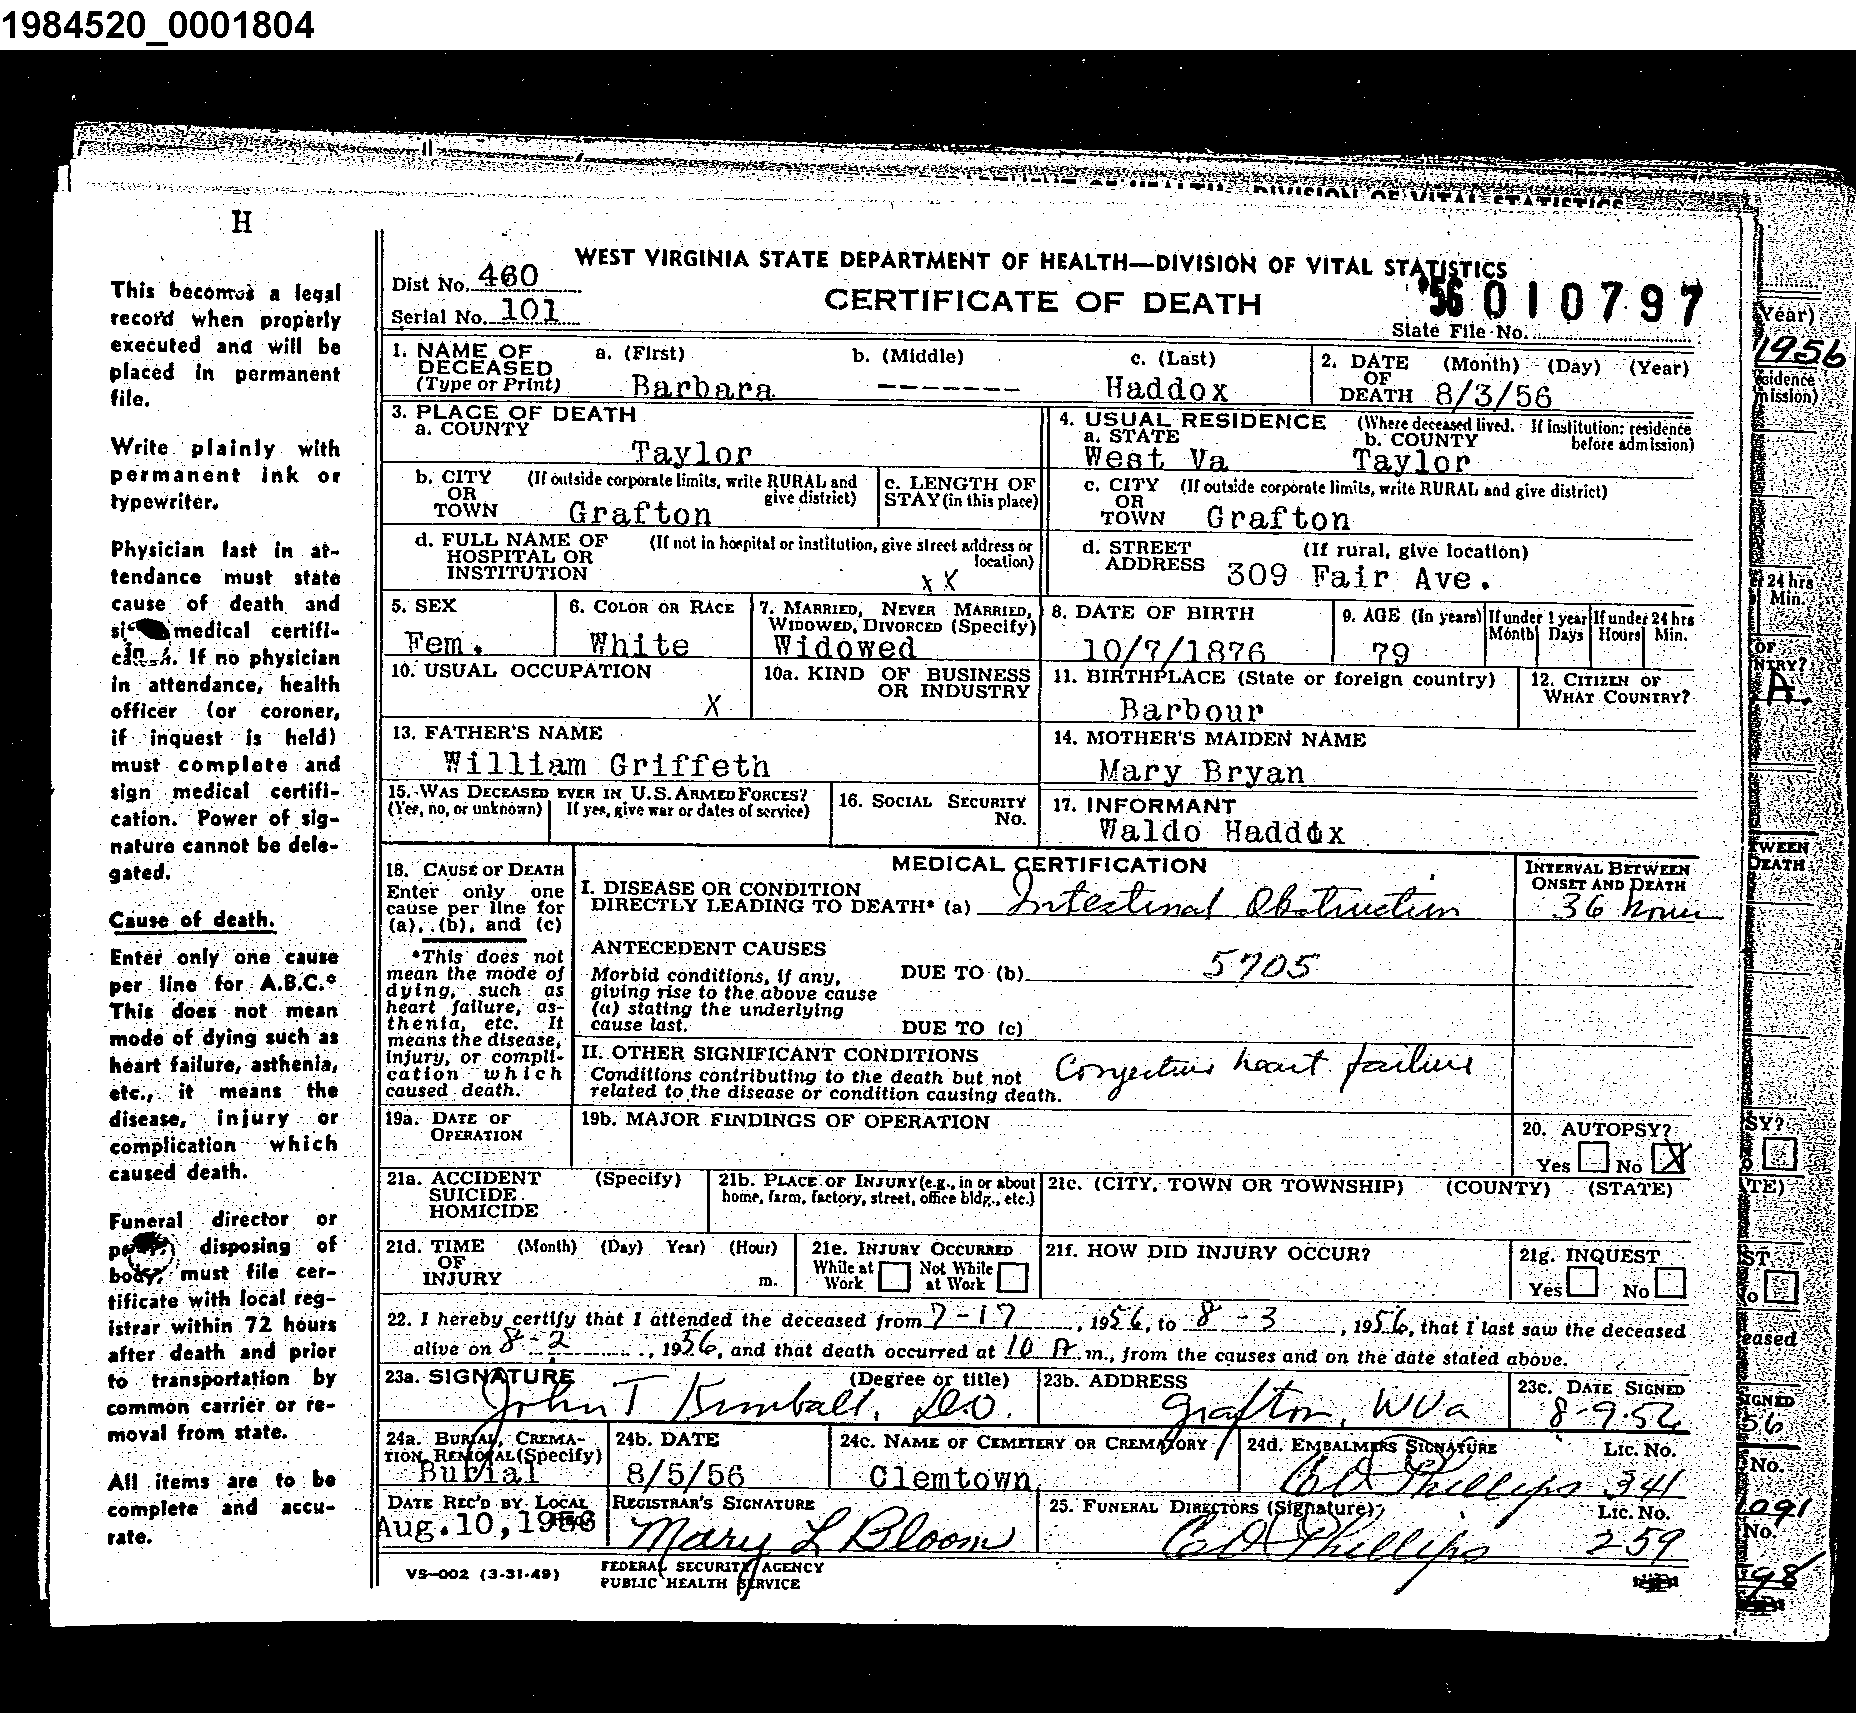 1984520_0001804
H
This becomes a legal
record when properly
executed and will be
placed in permanent
file.
Write plainly with
permanent ink or
typewriter.
Physician last in at-
tendance must state
cause of death and
medical certifi-
If no physician
in attendance, health
officer (or coroner,
if inquest is held)
must complete and
sign medical certifi-
cation. Power of sig-
nature cannot be dele-
gated.
Cause of death.
Enter only one cause
per line for A.B.C.*
This does not mean
mode of dying such as
heart failure, asthenia,
etc., it means the
disease, injury or
complication which
caused death.
Funeral director or
disposing of
body, must file cer-
tificate with local reg-
istrar within 72 hours
after death and prior
to transportation by
common carrier or re-
moval from state.
All items are to be
complete and accu-
rate.
WEST VIRGINIA STATE DEPARTMENT OF HEALTH—DIVISION OF VITAL STATISTICS
Dist No. 460
Serial No. 101
CERTIFICATE OF DEATH
'56 010797
State File No.
1. NAME OF DECEASED (Type or Print) a. (First) Barbara b. (Middle) ------- c. (Last) Haddox
2. DATE OF DEATH (Month) (Day) (Year) 8/3/56
3. PLACE OF DEATH
a. COUNTY Taylor
4. USUAL RESIDENCE (Where deceased lived. If institution: residence before admission)
a. STATE West Va b. COUNTY Taylor
b. CITY OR TOWN (If outside corporate limits, write RURAL and give district) Grafton
c. LENGTH OF STAY (in this place)
c. CITY OR TOWN (If outside corporate limits, write RURAL and give district) Grafton
d. FULL NAME OF HOSPITAL OR INSTITUTION (If not in hospital or institution, give street address or location) X X
d. STREET ADDRESS (If rural, give location) 309 Fair Ave.
5. SEX Fem.
6. COLOR OR RACE White
7. MARRIED, NEVER MARRIED, WIDOWED, DIVORCED (Specify) Widowed
8. DATE OF BIRTH 10/7/1876
9. AGE (In years) 79 If under 1 year Month Days If under 24 hrs Hours Min.
10. USUAL OCCUPATION X
10a. KIND OF BUSINESS OR INDUSTRY
11. BIRTHPLACE (State or foreign country) Barbour
12. CITIZEN OF WHAT COUNTRY?
13. FATHER'S NAME William Griffeth
14. MOTHER'S MAIDEN NAME Mary Bryan
15. WAS DECEASED EVER IN U.S. ARMED FORCES?
(Yes, no, or unknown) If yes, give war or dates of service)
16. SOCIAL SECURITY No.
17. INFORMANT Waldo Haddox
MEDICAL CERTIFICATION
18. CAUSE OF DEATH
Enter only one
cause per line for
(a), (b), and (c)
*This does not
mean the mode of
dying, such as
heart failure, as-
thenia, etc. It
means the disease,
injury, or compli-
cation which
caused death.
I. DISEASE OR CONDITION
DIRECTLY LEADING TO DEATH* (a) Intestinal Obstruction
INTERVAL BETWEEN ONSET AND DEATH
36 hours
ANTECEDENT CAUSES
Morbid conditions, if any,
giving rise to the above cause
(a) stating the underlying
cause last.
DUE TO (b) 5705
DUE TO (c)
II. OTHER SIGNIFICANT CONDITIONS
Conditions contributing to the death but not
related to the disease or condition causing death.
Congestive heart failure
19a. DATE OF OPERATION
19b. MAJOR FINDINGS OF OPERATION
20. AUTOPSY?
Yes No X
21a. ACCIDENT SUICIDE HOMICIDE (Specify)
21b. PLACE OF INJURY (e.g., in or about home, farm, factory, street, office bldg., etc.)
21c. (CITY, TOWN OR TOWNSHIP) (COUNTY) (STATE)
21d. TIME OF INJURY (Month) (Day) Year) (Hour) m.
21e. INJURY OCCURRED
While at Work Not While at Work
21f. HOW DID INJURY OCCUR?
21g. INQUEST
Yes No
22. I hereby certify that I attended the deceased from 7-17, 1956, to 8-3, 1956, that I last saw the deceased
alive on 8-2, 1956, and that death occurred at 10 A m., from the causes and on the date stated above.
23a. SIGNATURE (Degree or title) John T Kimball, D.O.
23b. ADDRESS Grafton, WVa
23c. DATE SIGNED 8-9-56
24a. BURIAL, CREMA-
TION, REMOVAL (Specify) Burial
24b. DATE 8/5/56
24c. NAME OF CEMETERY OR CREMATORY Clemtown
24d. EMBALMERS SIGNATURE Lic. No. Phillips 341
DATE REC'D BY LOCAL Aug. 10, 1956
REGISTRAR'S SIGNATURE Mary L Bloom
25. FUNERAL DIRECTORS (Signature) Lic. No. Phillips 259
VS—002 (3-31-49)
FEDERAL SECURITY AGENCY
PUBLIC HEALTH SERVICE
Year)
1956
24 hrs
Min.
NTRY?
A.
TWEEN
DEATH
SY?
TE)
ST
eased
IGNED
56
No.
1091
No.
98